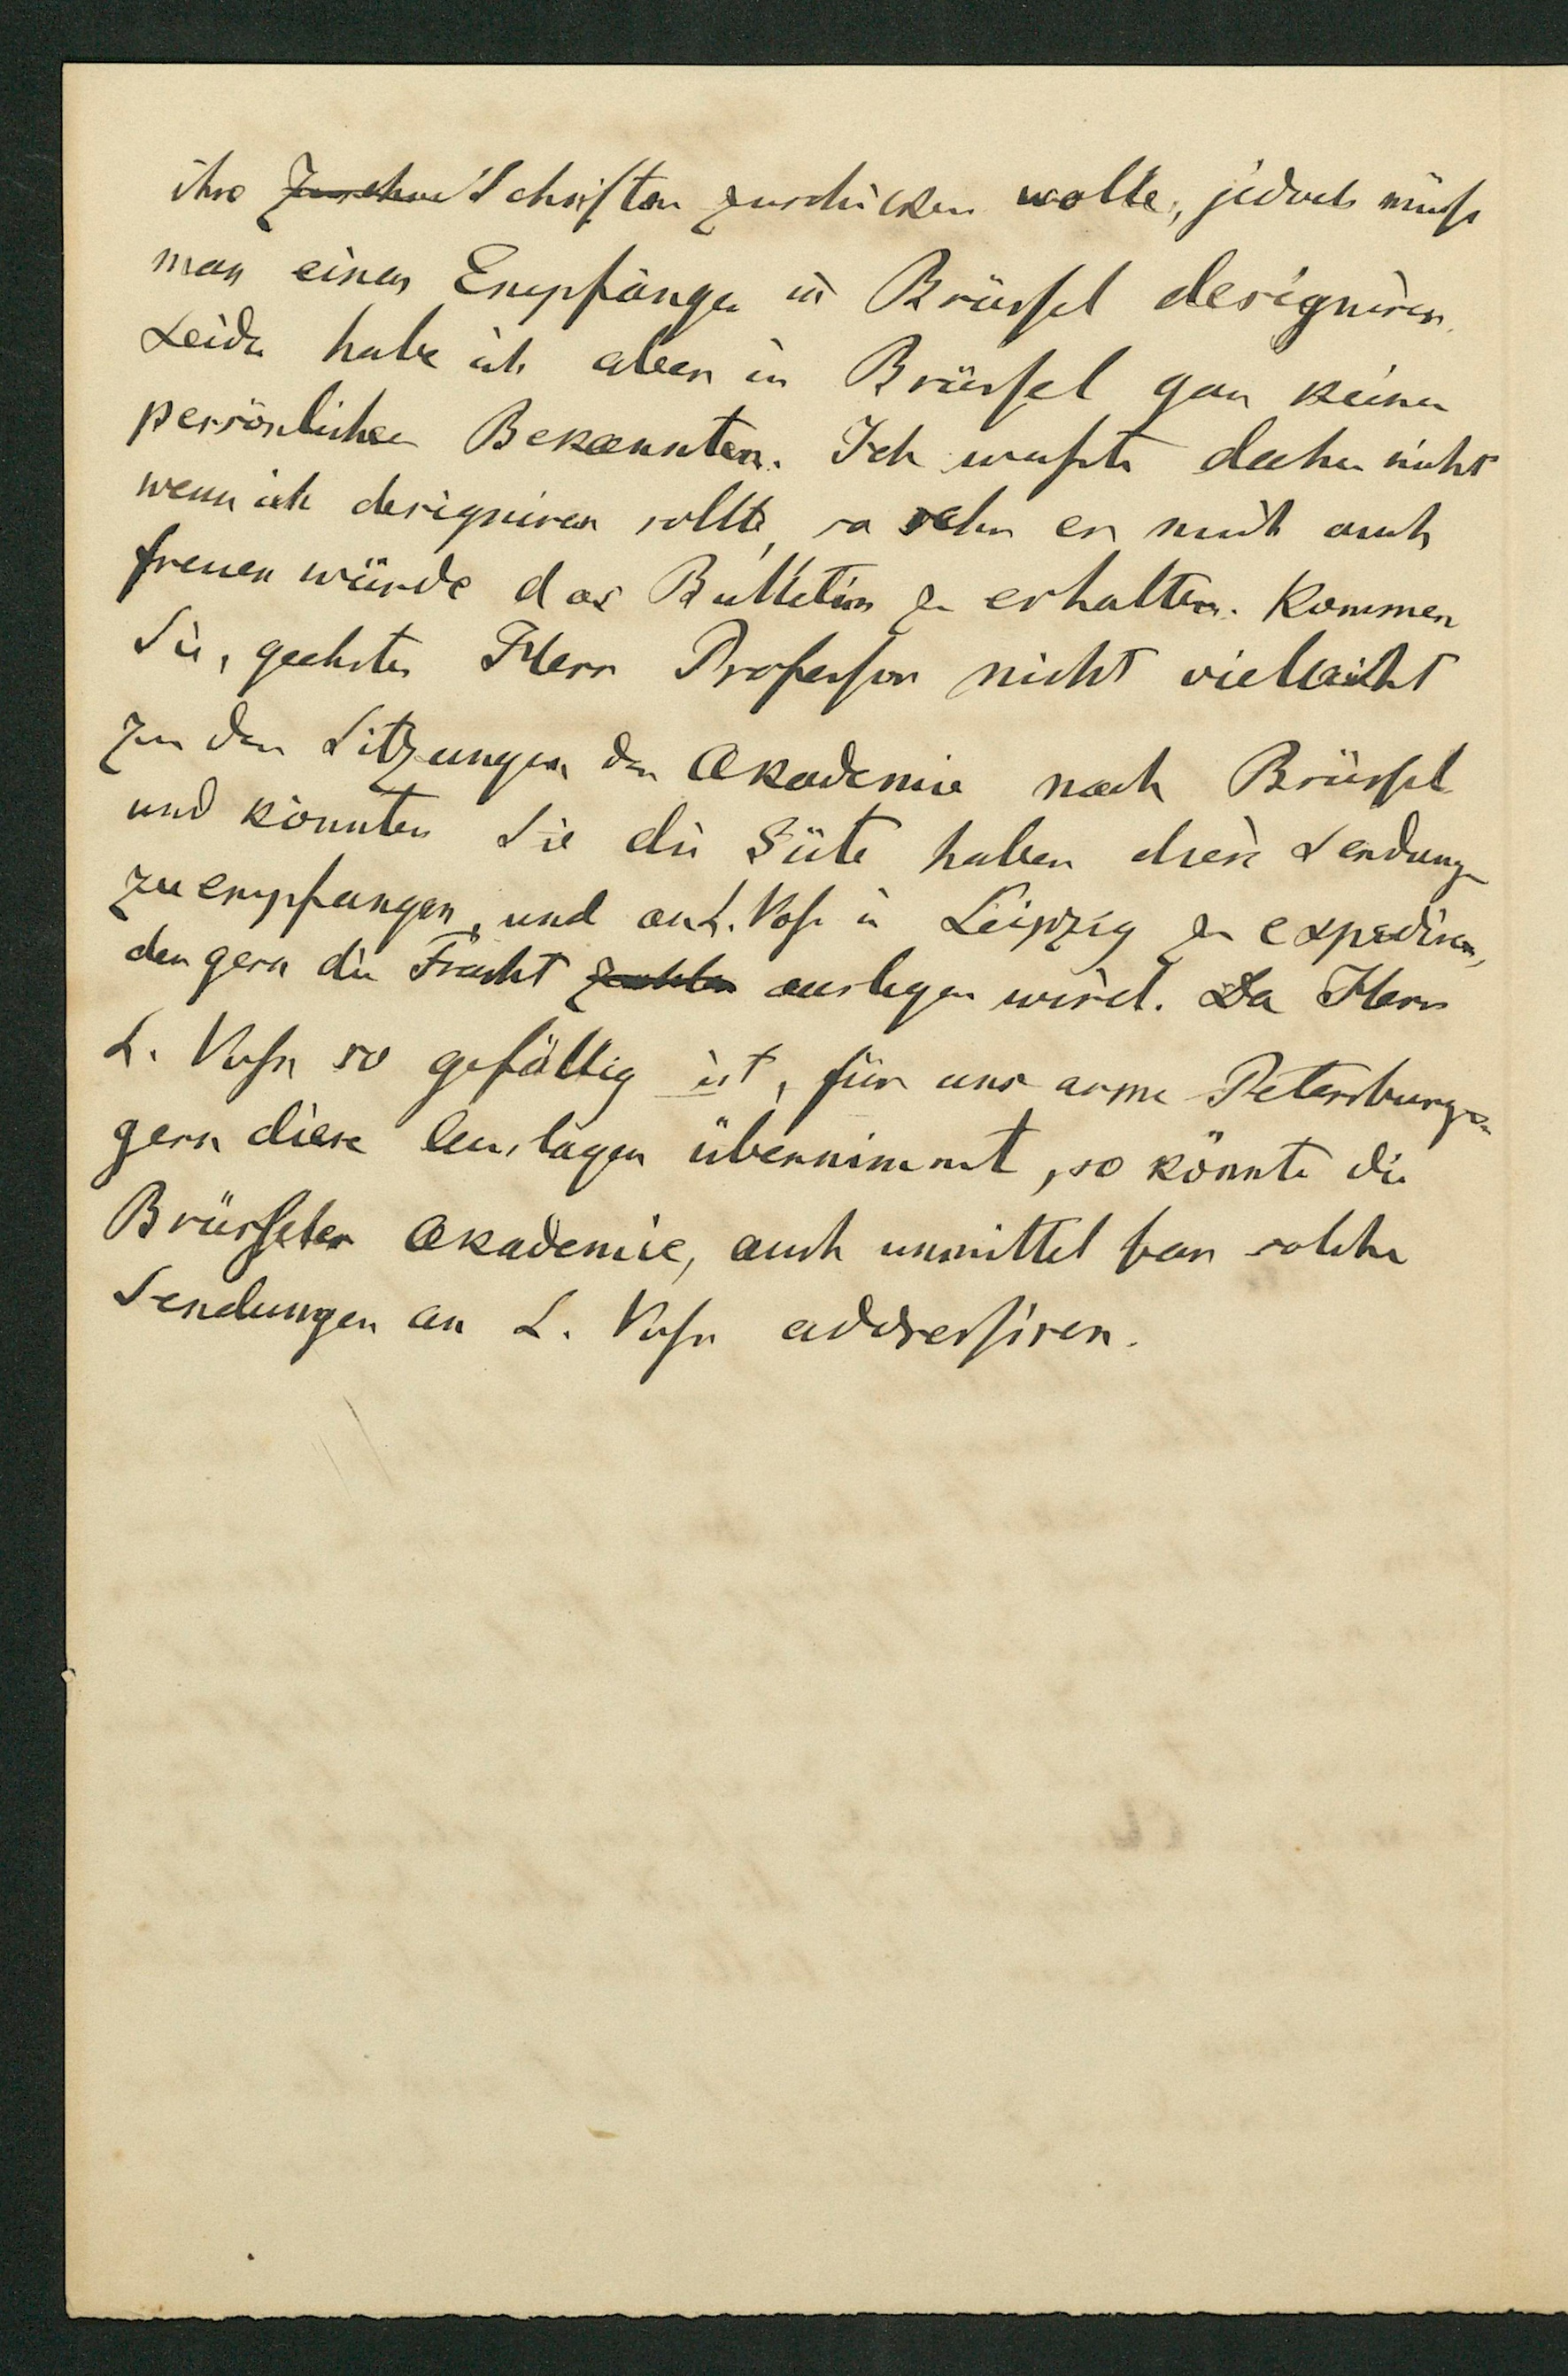 ihre Schriften zuschicken wolle, jedoch müsse
man einen Empfänger in Brüssel designiren.
Leider habe ich aber in Brüssel gar keinen
persönlichen Bekannten. Ich wusste daher nicht
wenn ich designiren sollte, so sehr es mich auch
freuen würde das Bulletin zu erhalten. Kommen
Sie, geehrter Herr Professor nicht vielleicht
zu den Sitzungen der Akademie nach Brüssel
und könnten Sie die Güte haben diese Sendung
zu empfangen, und an L. Voss in Leipzig zu expediren,
der gern die Fracht zahlen auslegen wird. Da Herr
L. Voss so gefällig ist, für uns arme Petersburger
gern diese Auslagen übernimmt, so könnte die
Brüsseler Akademie, auch unmittelbar solche
Sendungen an L. Voss addressiren.